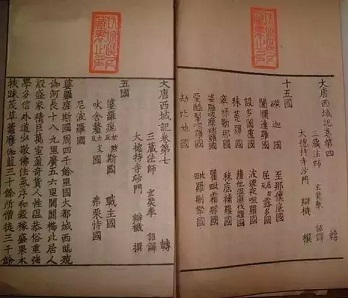 大唐西域記卷第四
三藏法師 玄奘奉 詔譯
大總持寺沙門 辯機 撰
十五國
磔迦國 至那僕底國
闍爛達羅國 屈露多國
波理夜呾羅國
秣菟羅國
秣底補羅國
劫比他國
大唐西域記卷第七
三藏法師 玄奘奉 詔譯
大總持寺沙門 辯機 撰
五國
婆羅痆斯國 戰主國
吠舍釐國 弗栗恃國
尼波羅國
婆羅痆斯國周四千餘里國大都城西臨殑
伽河長十八九里廣五六里閭閻櫛比居人
殷盛家積巨萬室盈奇貨人性溫恭俗重強
學多信外道少敬佛法氣序和穀稼盛果木
扶疎茂草靃靡伽藍三十餘所僧徒三千餘